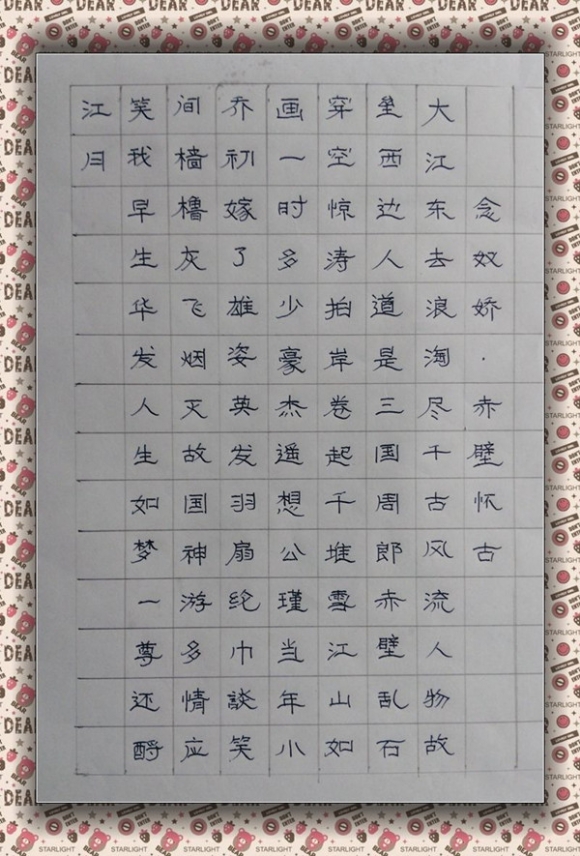 念奴娇·赤壁怀古
大江东去浪淘尽千古风流人物故
垒西边人道是三国周郎赤壁乱石
穿空惊涛拍岸卷起千堆雪江山如
画一时多少豪杰遥想公瑾当年小
乔初嫁了雄姿英发羽扇纶巾談笑
间樯橹灰飞烟灭故国神游多情应
笑我早生华发人生如梦一尊还酹
江月
DEAR
BEAR
STARLIGHT
DON'T ENTER